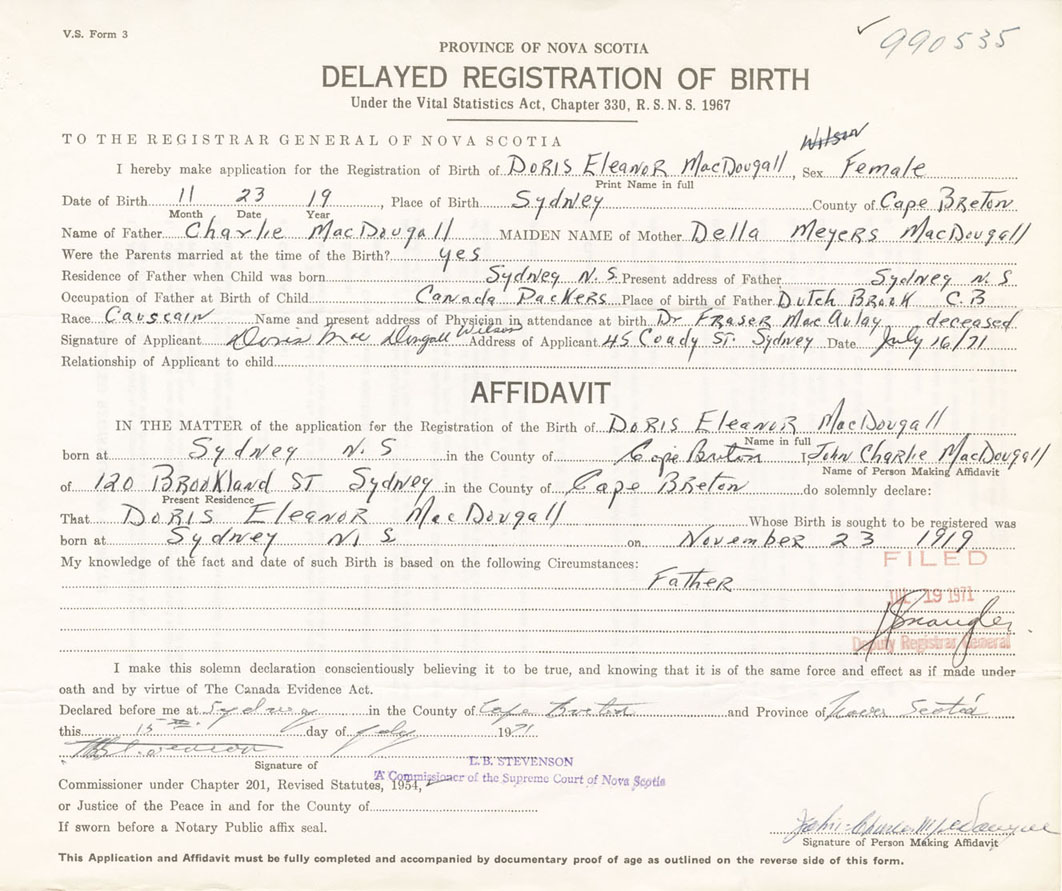 V.S. Form 3
990535
PROVINCE OF NOVA SCOTIA
DELAYED REGISTRATION OF BIRTH
Under the Vital Statistics Act, Chapter 330, R. S. N. S. 1967
TO THE REGISTRAR GENERAL OF NOVA SCOTIA
Wilson
I hereby make application for the Registration of Birth of DORIS ELEANOR MacDougall, Sex Female
Print Name in full
Date of Birth 11 23 19, Place of Birth Sydney County of CAPE BRETON
Month Date Year
Name of Father Charlie MacDougall MAIDEN NAME of Mother Della Meyers MacDougall
Were the Parents married at the time of the Birth? yes
Residence of Father when Child was born Sydney N.S. Present address of Father Sydney N.S
Occupation of Father at Birth of Child Canada Packers Place of birth of Father Dutch Brook C.B
Race Causcain Name and present address of Physician in attendance at birth Dr Fraser MacAulay deceased
Signature of Applicant Doris MacDougall Wilson Address of Applicant 45 Coady St. Sydney Date July 16/71
Relationship of Applicant to child
AFFIDAVIT
IN THE MATTER of the application for the Registration of the Birth of DORIS ELEANOR MacDougall
Name in full
born at Sydney N.S in the County of Cape Breton I John Charlie MacDougall
Name of Person Making Affidavit
of 120 Brookland ST Sydney in the County of Cape Breton do solemnly declare:
Present Residence
That DORIS ELEANOR MacDougall Whose Birth is sought to be registered was
born at Sydney N.S on November 23 1919
FILED
My knowledge of the fact and date of such Birth is based on the following Circumstances:
Father
JUL 19 1971
Deputy Registrar General
I make this solemn declaration conscientiously believing it to be true, and knowing that it is of the same force and effect as if made under
oath and by virtue of The Canada Evidence Act.
Declared before me at Sydney in the County of Cape Breton and Province of Nova Scotia
this 15th day of July 1971
Signature of
L. B. STEVENSON
A Commissioner of the Supreme Court of Nova Scotia
Commissioner under Chapter 201, Revised Statutes, 1954,
or Justice of the Peace in and for the County of
If sworn before a Notary Public affix seal.
John Charles MacDougall
Signature of Person Making Affidavit
This Application and Affidavit must be fully completed and accompanied by documentary proof of age as outlined on the reverse side of this form.